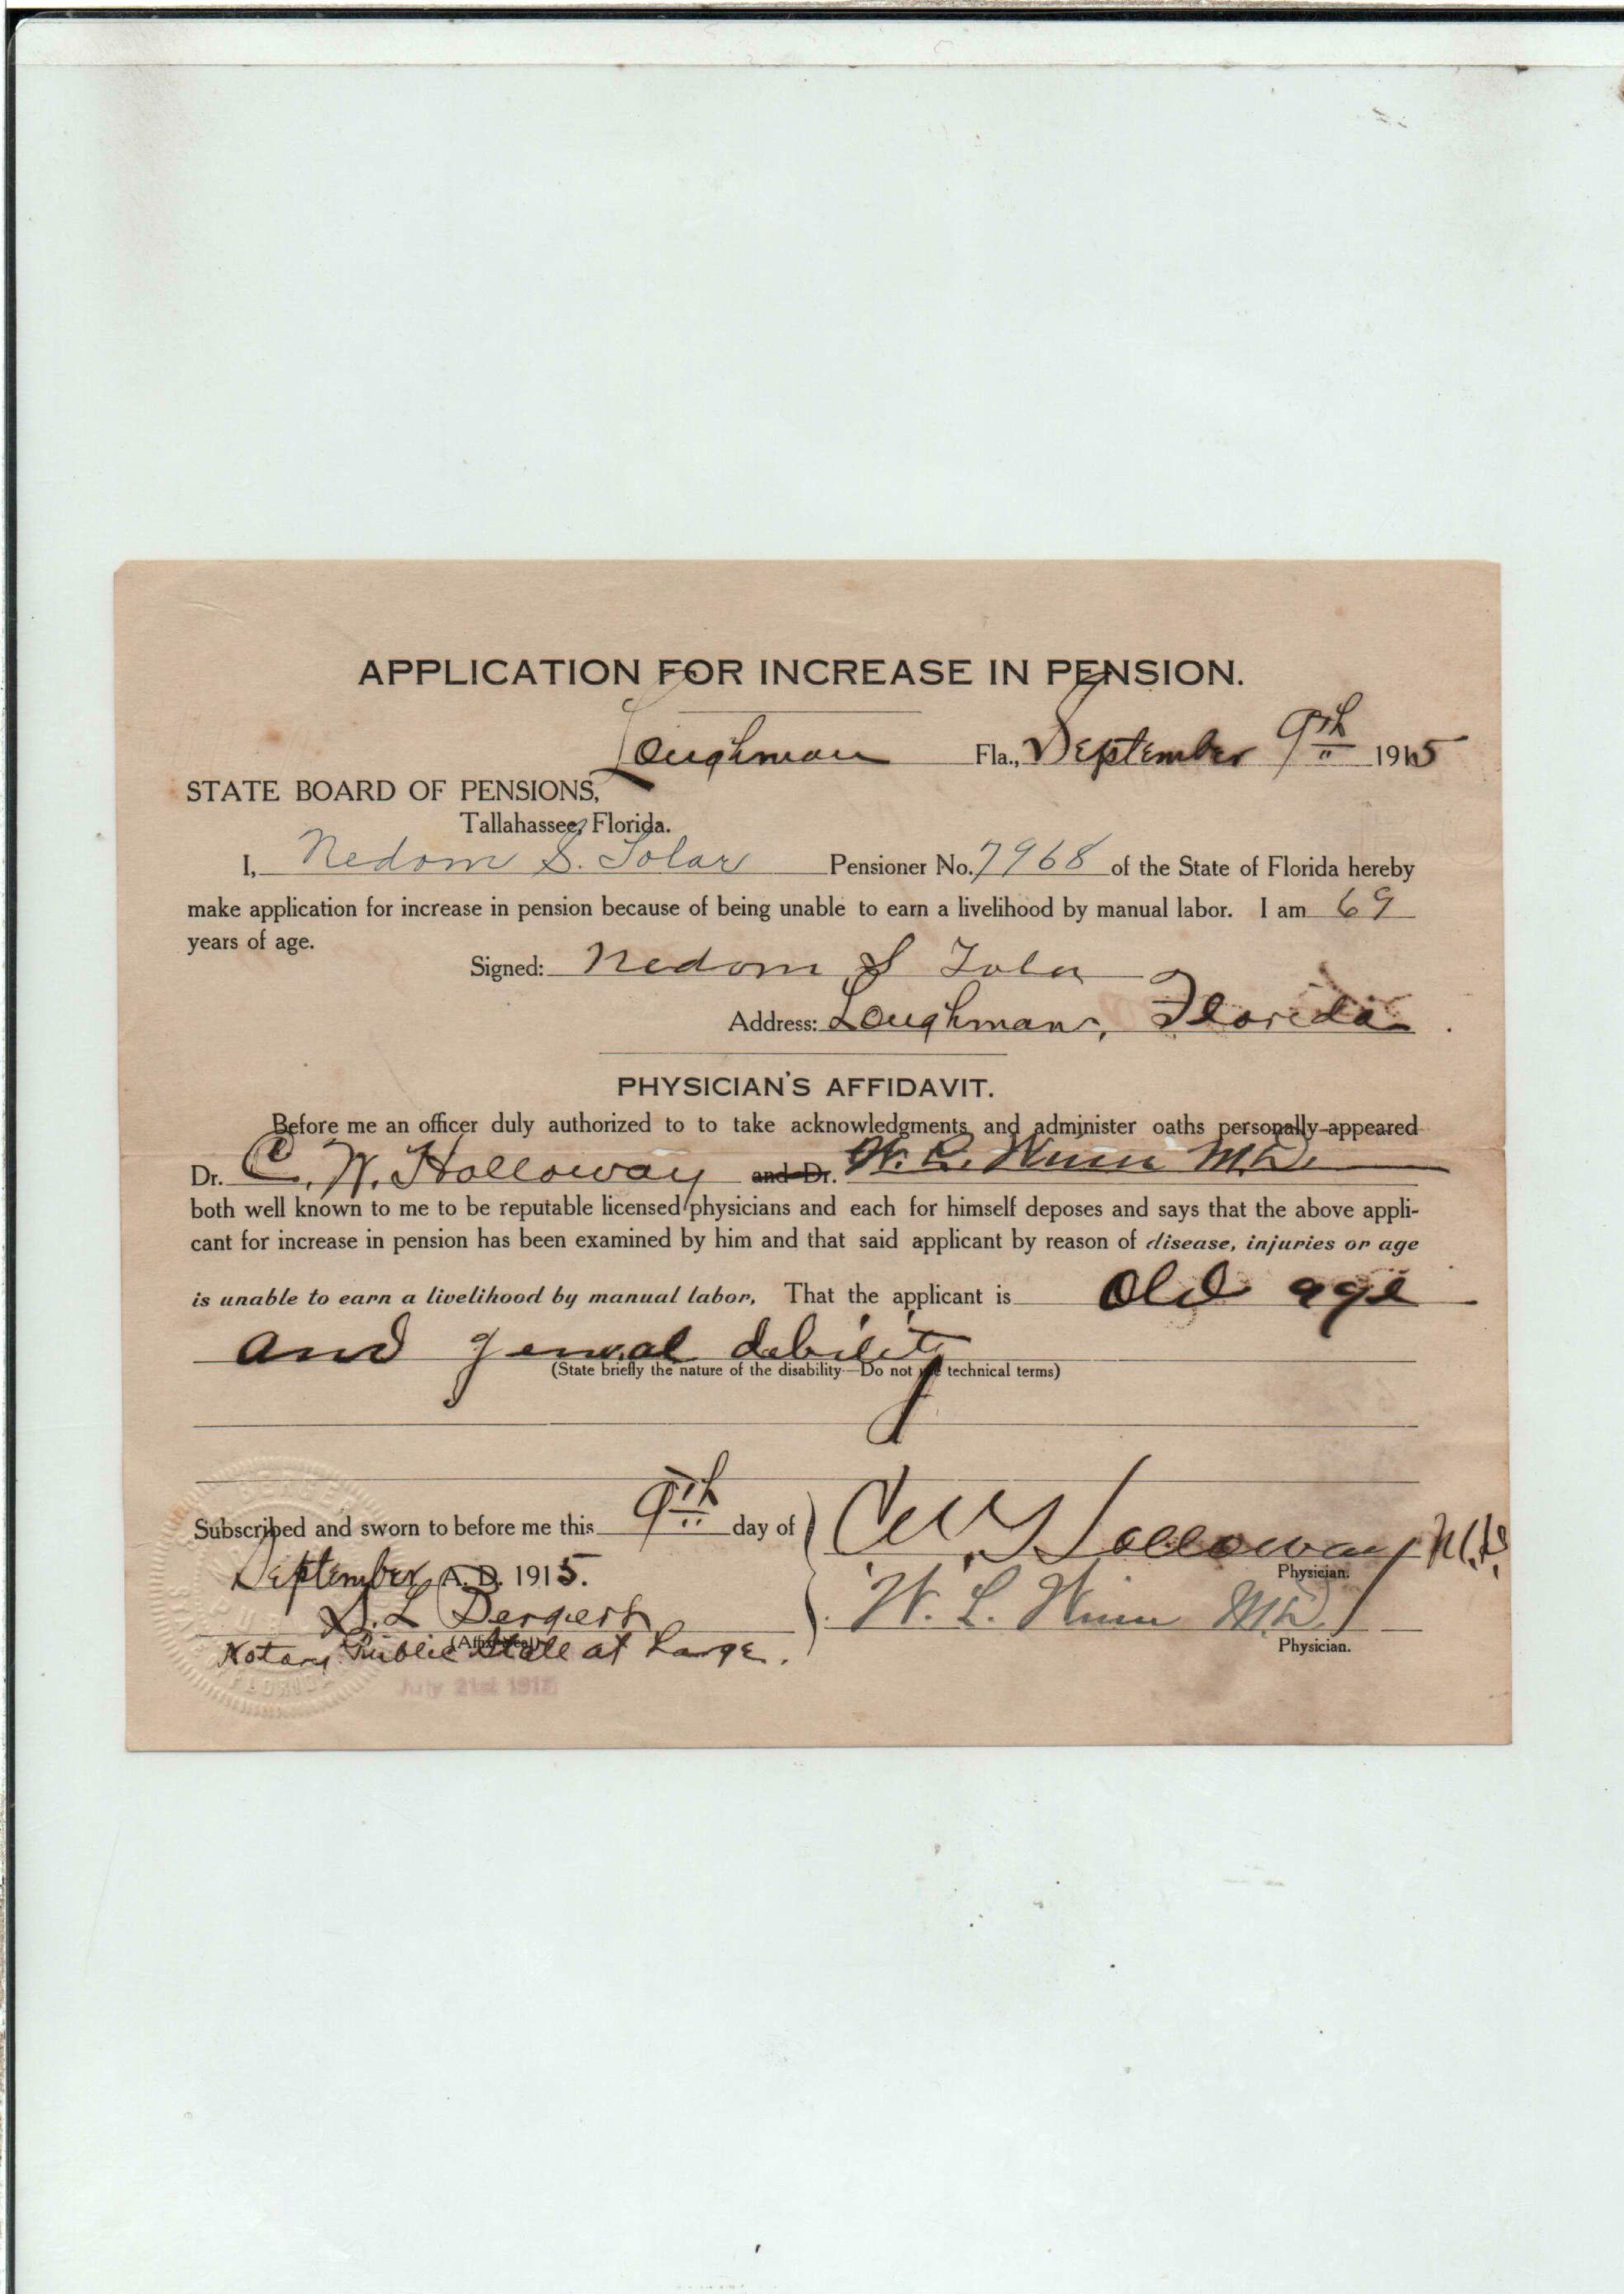 APPLICATION FOR INCREASE IN PENSION.
Loughman Fla., September 9th 1915
STATE BOARD OF PENSIONS,
Tallahassee, Florida.
I, Nedom S. Tolar Pensioner No. 7968 of the State of Florida hereby
make application for increase in pension because of being unable to earn a livelihood by manual labor. I am 69
years of age.
Signed: Nedom S Tolar
Address: Loughman, Florida.
PHYSICIAN'S AFFIDAVIT.
Before me an officer duly authorized to to take acknowledgments and administer oaths personally appeared
Dr. C. W. Holloway and Dr. W. L. Winn M.D.
both well known to me to be reputable licensed physicians and each for himself deposes and says that the above appli-
cant for increase in pension has been examined by him and that said applicant by reason of disease, injuries or age
is unable to earn a livelihood by manual labor, That the applicant is old age
and general debility
(State briefly the nature of the disability—Do not use technical terms)
Subscribed and sworn to before me this 9th day of
September A. D. 1915.
C W Holloway M.D.
Physician.
W. L. Winn M.D.
Physician.
Notary Public State at Large.
FLORIDA